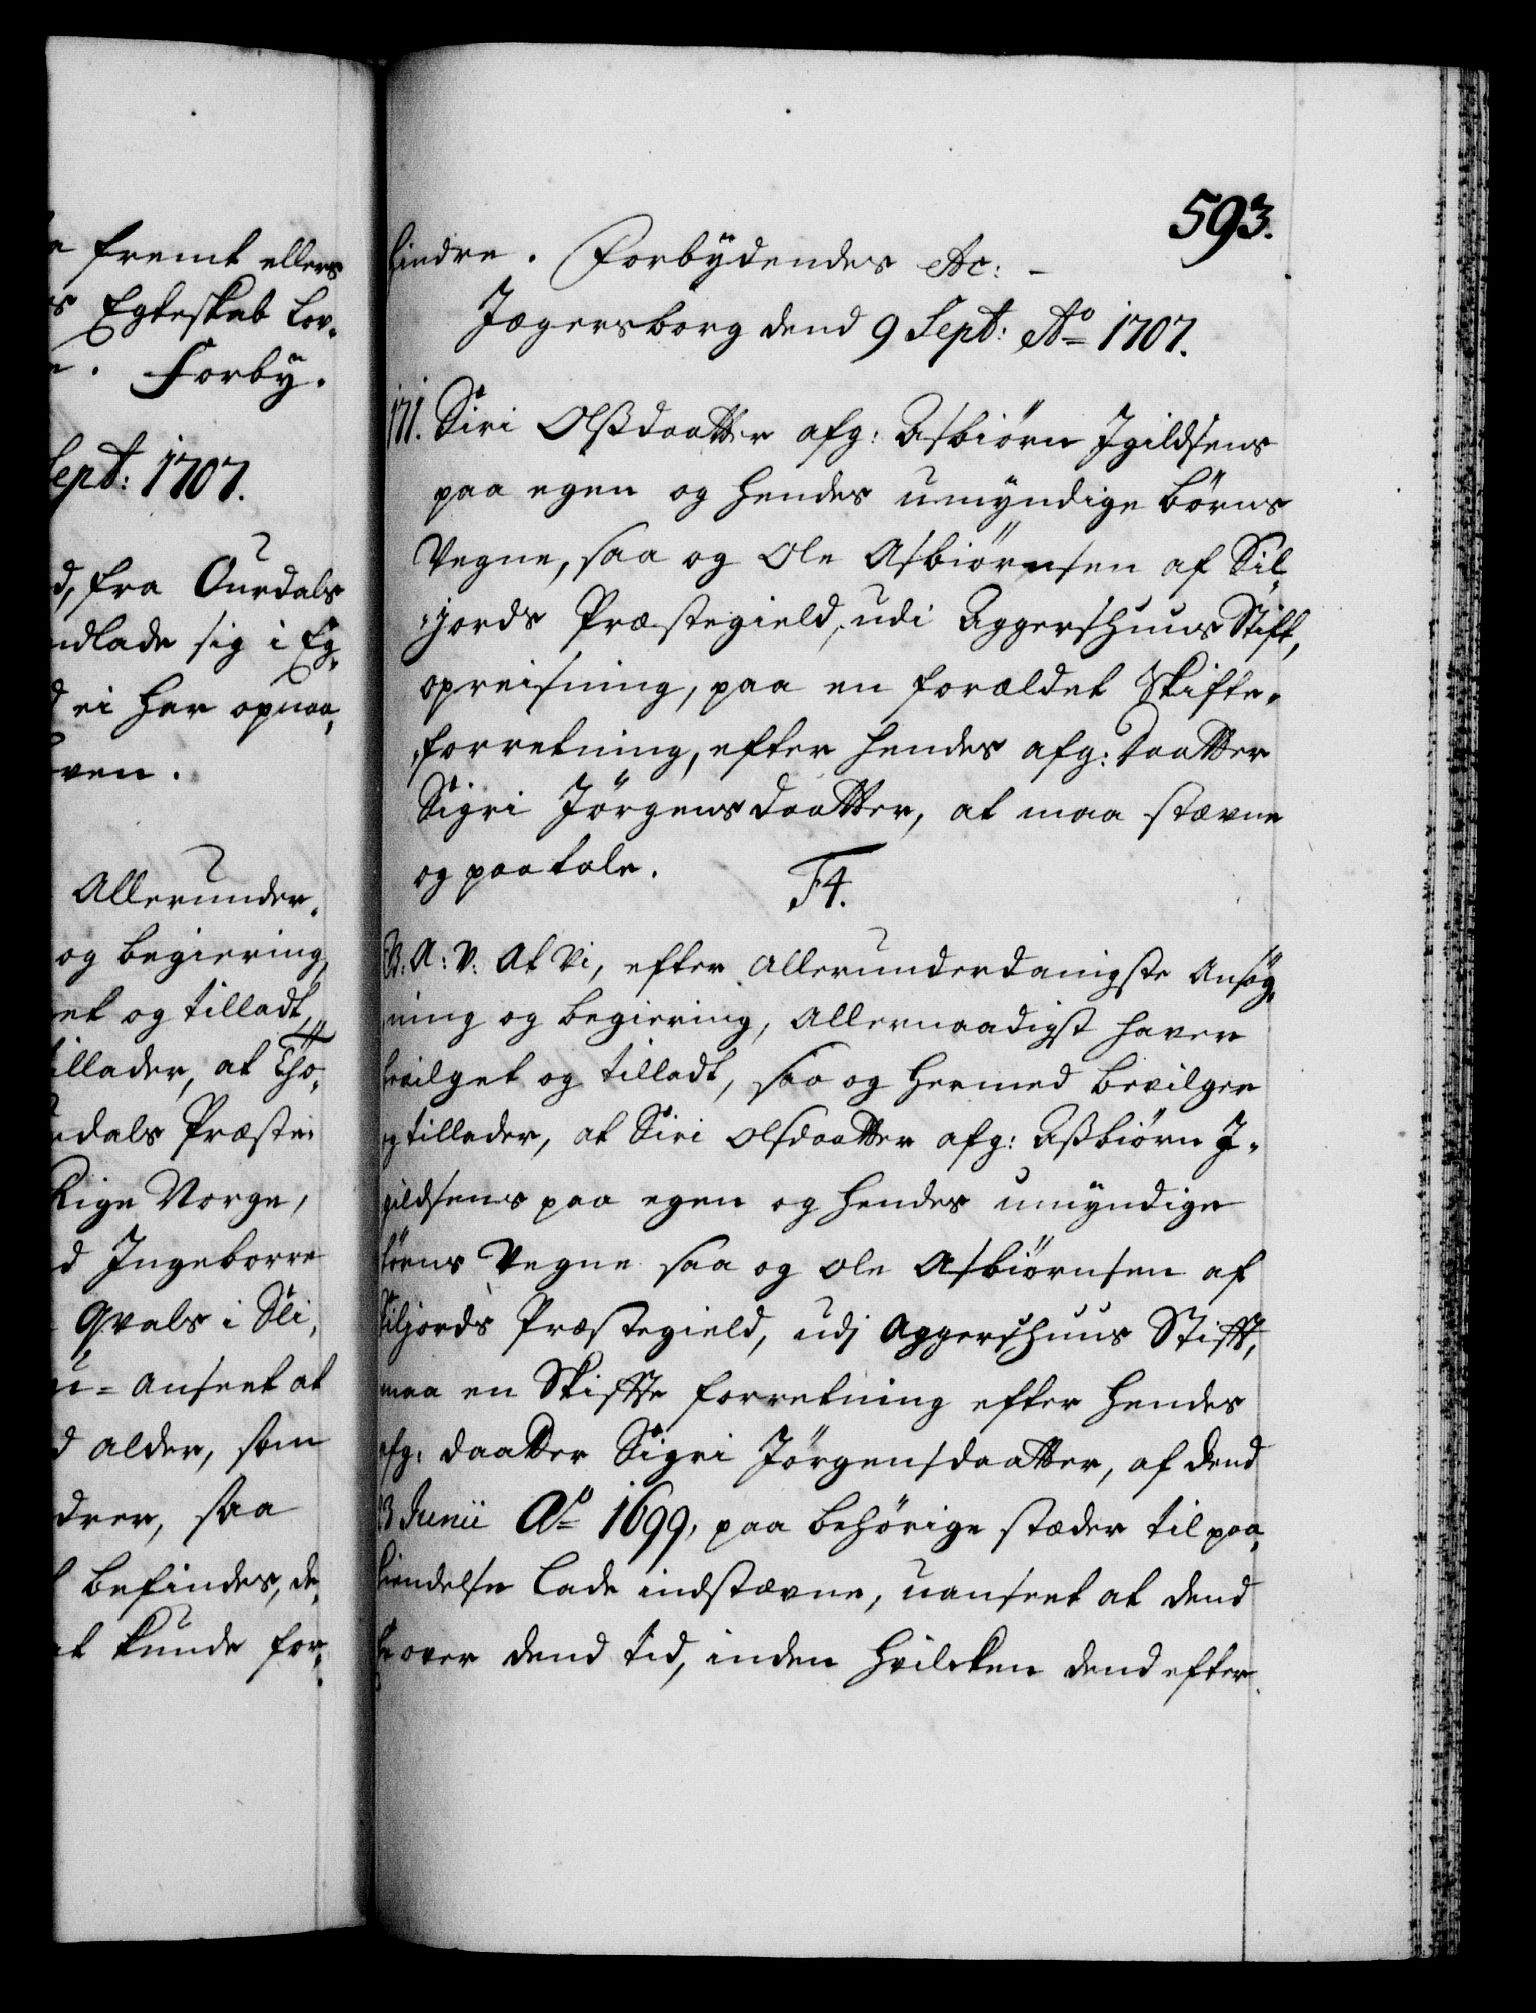 fremt ellers
Egteskab Lov-
Forby-
Sept: 1707.
fra Ourdals
indlade sig i Eg-
ei har opnaa-
Allerunder-
og begiering
og tilladt
tillader, at Tho-
dals Præste-
Rige Norge,
Ingeborre
Qvals i Sli-
anseet at
alder, som
saa
befindes, de-
kunde for-
593.
hindre. Forbydendes etc: -
Jægersborg dend 9 Sept: Ao 1707.
171. Siri Olßdaatter afg: Asbiørn Igildsens
paa egen og hendes umyndige børns
Vegne, saa og Ole Asbiørnsen af Sil-
jords Præstegield, udi Aggershuus Stift,
opreisning, paa en forældet Skifte-
forretning, efter hendes afg: Daatter
Sigri Jörgensdaatter, at maa stævne
og paatale.
F4.
G: A: V: At Vi, efter allerunderdanigste Ansøg-
ning og begiering, allernaadigst haver
bevilget og tilladt, saa og hermed bevilger
og tillader, at Siri Olsdaatter afg: Aßbiørn I-
gildsens paa egen og hendes umyndige
børns Vegne saa og Ole Asbiørnsen af
Siljords Præstegield, udj Aggershuus Stifft,
maa en Skiffte forretning efter hendes
afg: daatter Sigri Jörgensdaatter, af dend
3 Junii Ao 1699, paa behørige stæder til paa-
kiendelse lade indstævne, uanseet at dend
er over dend tid, inden hvilcken dend efter